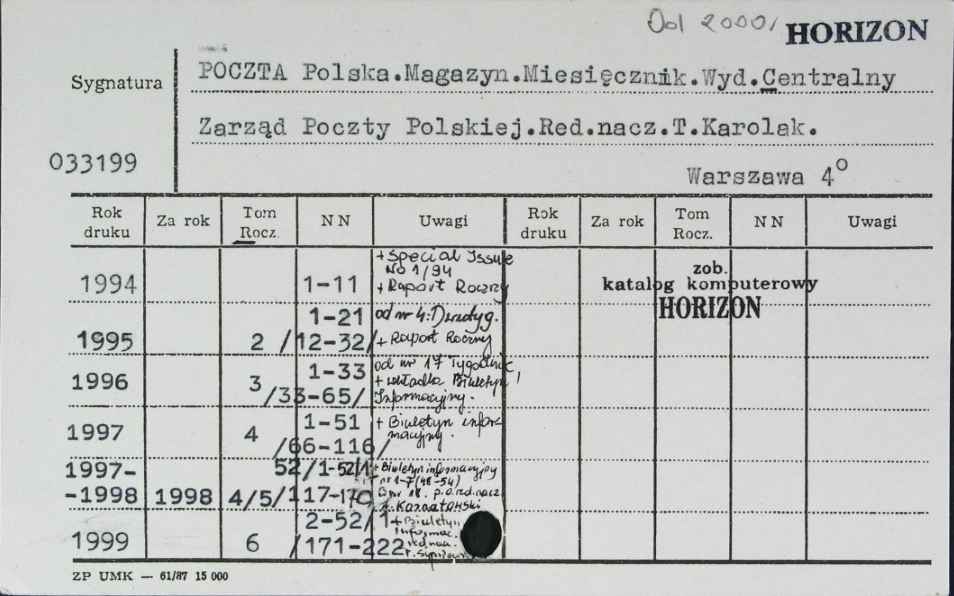 Od 2000, HORIZON
Sygnatura
POCZTA Polska.Magazyn.Miesięcznik.Wyd.Centralny
Zarząd Poczty Polskiej.Red.nacz.T.Karolak.
033199
Warszawa 4°
Rok druku Za rok Tom Rocz. NN Uwagi Rok druku Za rok Tom Rocz. NN Uwagi
1994 1-11 + Special Issue No 1/94 + Raport Roczny
zob.
katalog komputerowy
HORIZON
1995 2 1-21 /12-32/ od nr 4: Dwutyg. + Raport Roczny
1996 3 1-33 /33-65/ od nr 17 Tygodnik + wkładka Biuletyn Informacyjny.
1997 4 1-51 /66-116/ + Biuletyn informacyjny.
1997-
-1998 1998 4/5/ 52/1-52/1 117-170 + Biuletyn informacyjny nr 1-7 (48-54) nr 18. p.o. red. nacz.
1999 6 2-52/1 /171-222 + Biuletyn Informac.
ZP UMK — 61/87 15 000